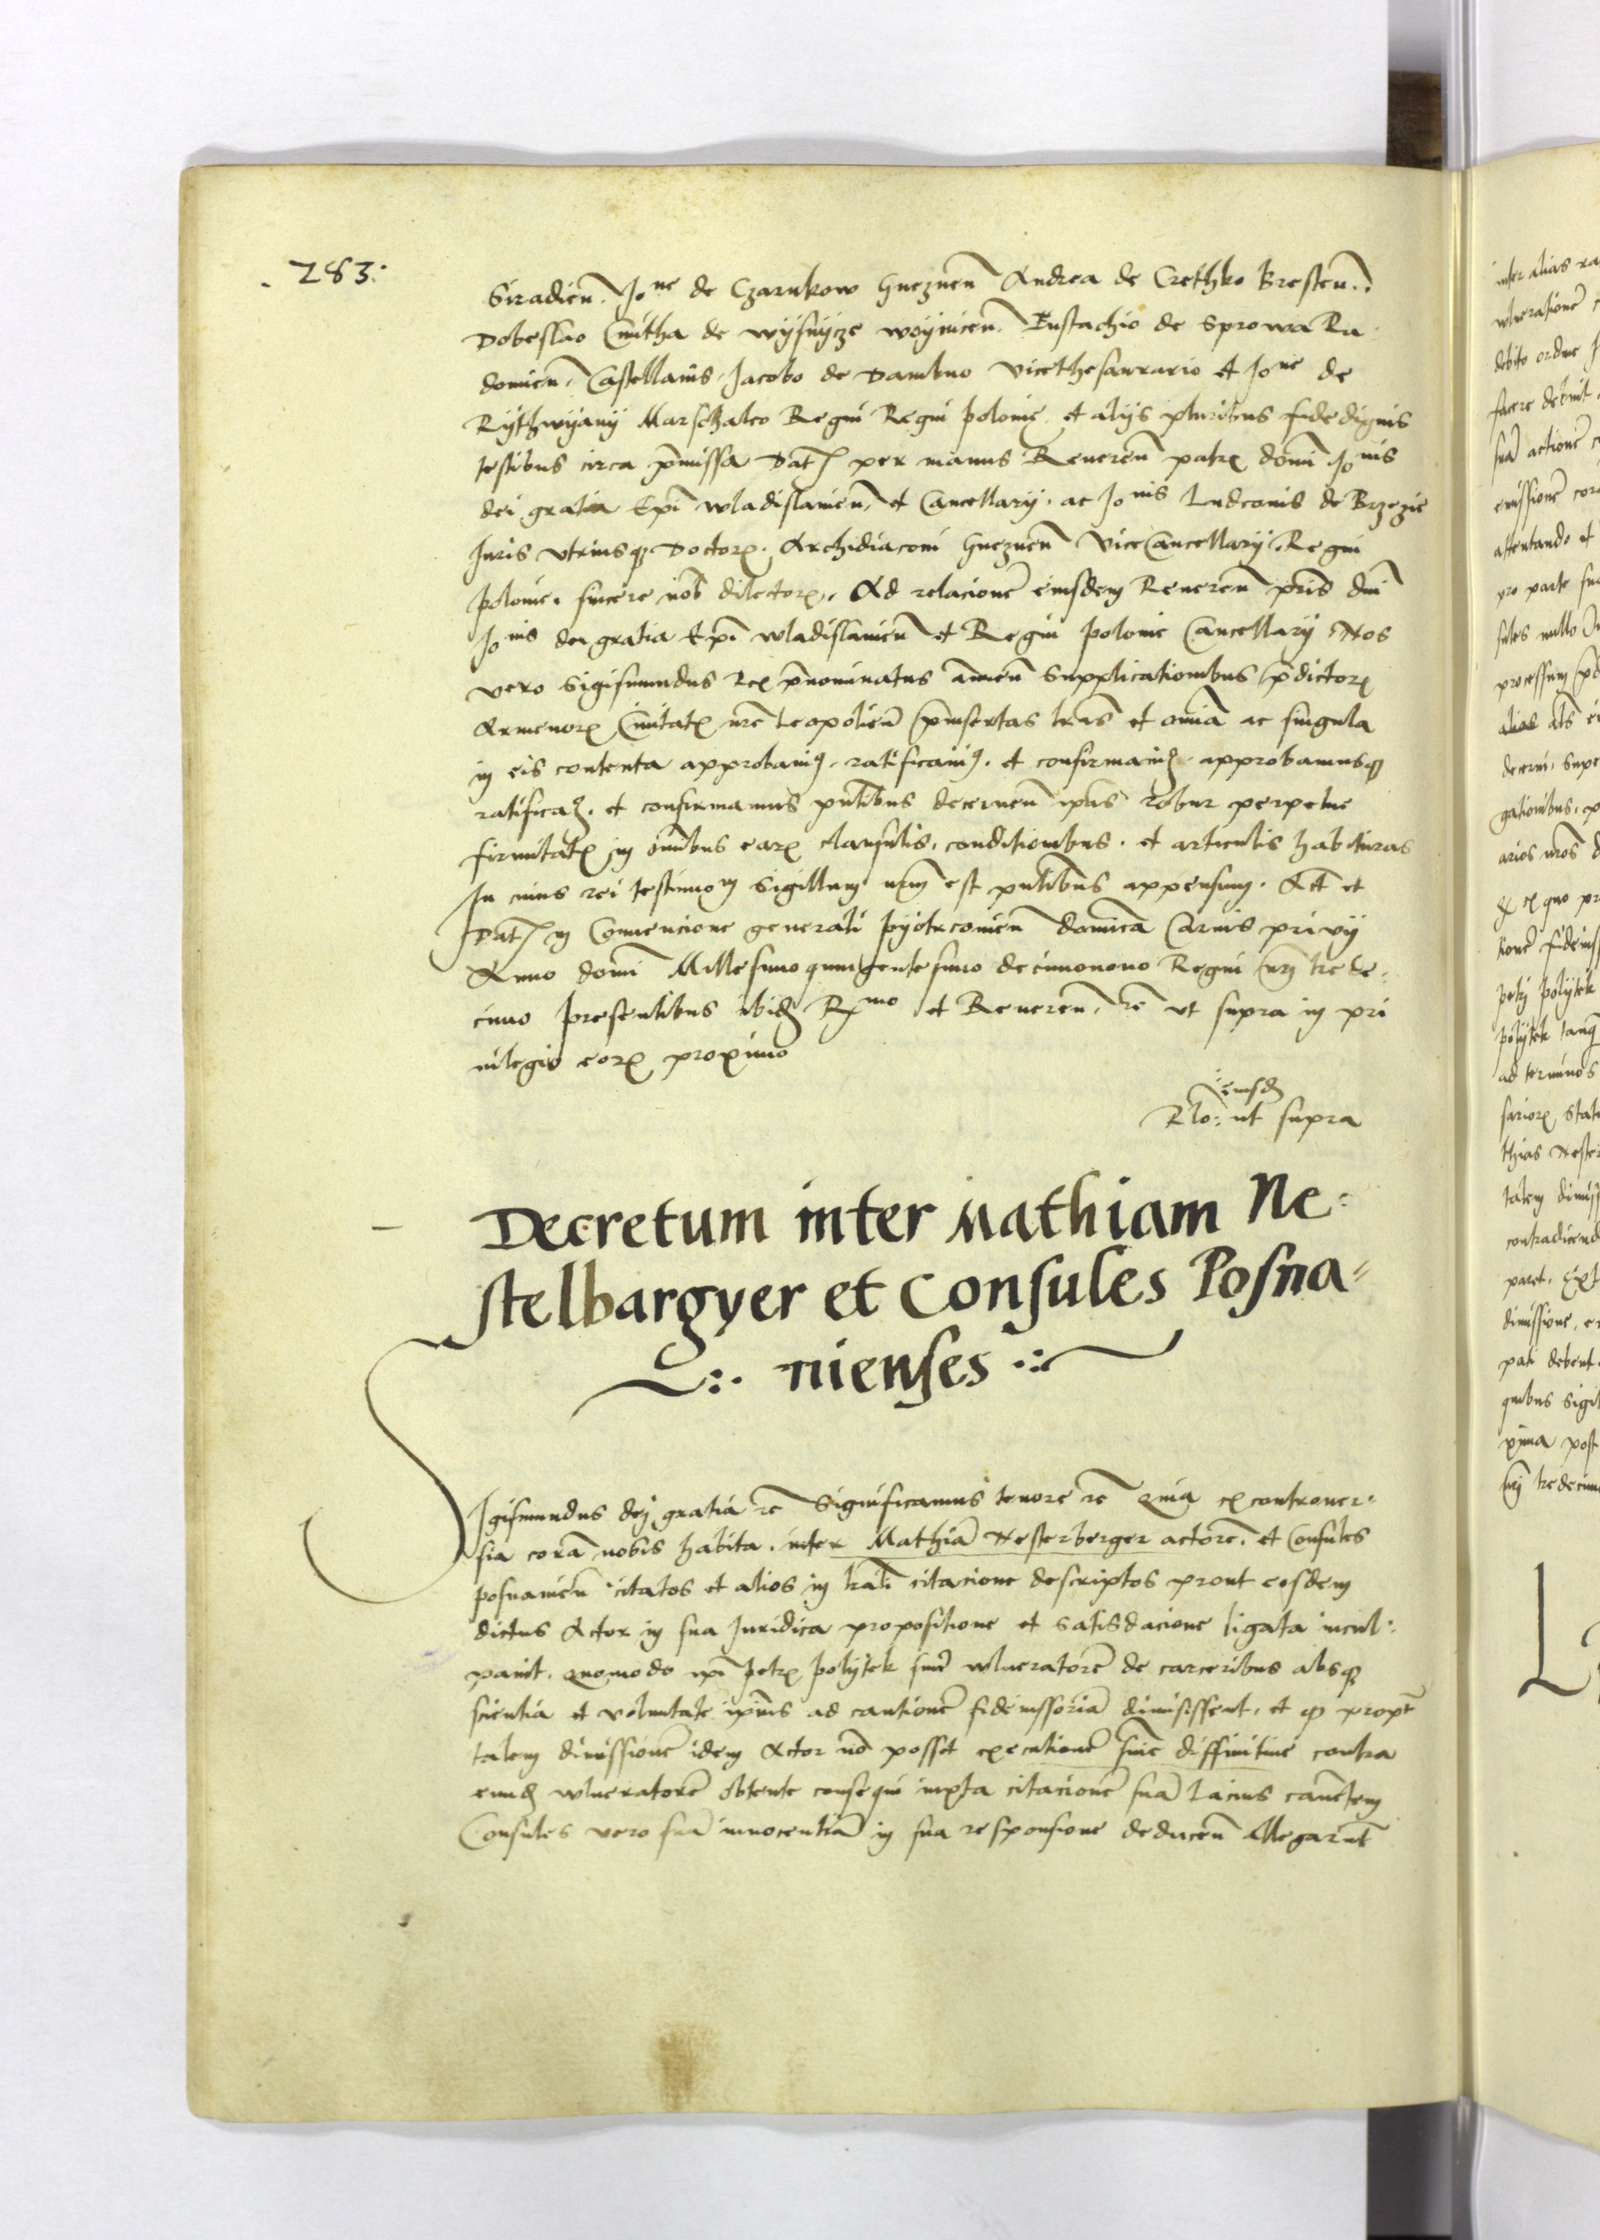 . 283 :
Siradien̄. Jo^ne de Czarnkow Gneznen̄ Andrea de Crethko Bresten̄ .
Dobeslao Cmitha de wysnycze woynicen̄. Eustachio de Sprowa Ra
domien̄. Castellanis. Jacobo de Dambno Vicethesaurario et Jo^ne de
Rythwyany Marschalco Regni Regni polonie et alijs pluribus fidedignis
testibus circa p̄missa Dat̄ per manus Reueren̄ patrꝫ domī Jo^nis
dei gratia Ep̄i wladislauien̄ et Cancellarij. ac Jo^nis Lutconis de Brzezie
Juris vtriusqꝫ Doctorꝫ. Archidiaconi Gneznen̄ ViceCancellarij Regni
polonie. sincere nob̄ dilectorꝫ. Ad relacionē eiusdem Reueren̄ pr̄is dn̄i
Jo^nis dei gratia Ep̄i wladislauien̄ et Regni polonie Cancellarij Nos
vero Sigismundus Rex p̄nominatus an̄uen̄ Supplicationibus p̄dictorꝫ
Armenorꝫ Ciuitatꝫ nr̄e Leopolien̄ p̄insertas lr̄as et om̄ia ac singula
in eis contenta approbauimꝰ. ratificauimꝰ. et confirmauimꝰ. approbamusqꝫ
ratificamꝰ. et confirmamus pn̄tibus decernen̄ ip̄as robur perpetue
firmitatꝫ in om̄ibus earꝫ clausulis, conditionibus. et articulis habituras
In cuius rei testimo^m Sigillum nr̄m est pn̄tibus appensum. Act̄ et
Dat̄ in Conuencione generali pyotrconien̄ domīca Carnis priuij
Anno domī Millesimo quingentesimo decimonono Regni nr̄i trede-
cimo presentibus ibidꝫ R^mo et Reueren̄. ꝛc̄ vt supra in pri
uilegio eorꝫ proximo
eiusdꝫ
Rlo: ut supra
Decretum inter Mathiam Ne-
stelbargyer et Consules Posna-
nienses
Sigismundus dej gratia ꝛc̄ Significamus tenore ꝛc̄ Quia ex controuer-
sia corā nobis habita. inter Mathiā Nesterberger actorē. et Consules
posnanien̄ citatos et alios in lr̄ali citacione descriptos prout eosdem
dictus Actor in sua Juridica propositione et satisdacione ligata incul-
pauit. Quomodo ip̄i petrꝫ polytek suū wlneratorē de carceribus absqꝫ
scientia et voluntate ip̄ius ad cautionē fideiussoriā dimisissent, et qꝫ propt̄
talem dimissionē idem Actor nō posset executionē sn̄ie diffinitiue contra
eundꝫ wlneratorē obtente consequi iuxta citacionē suā Lacius canētem
Consules vero suā innocentiā in sua responsione deducen̄ allegarūt